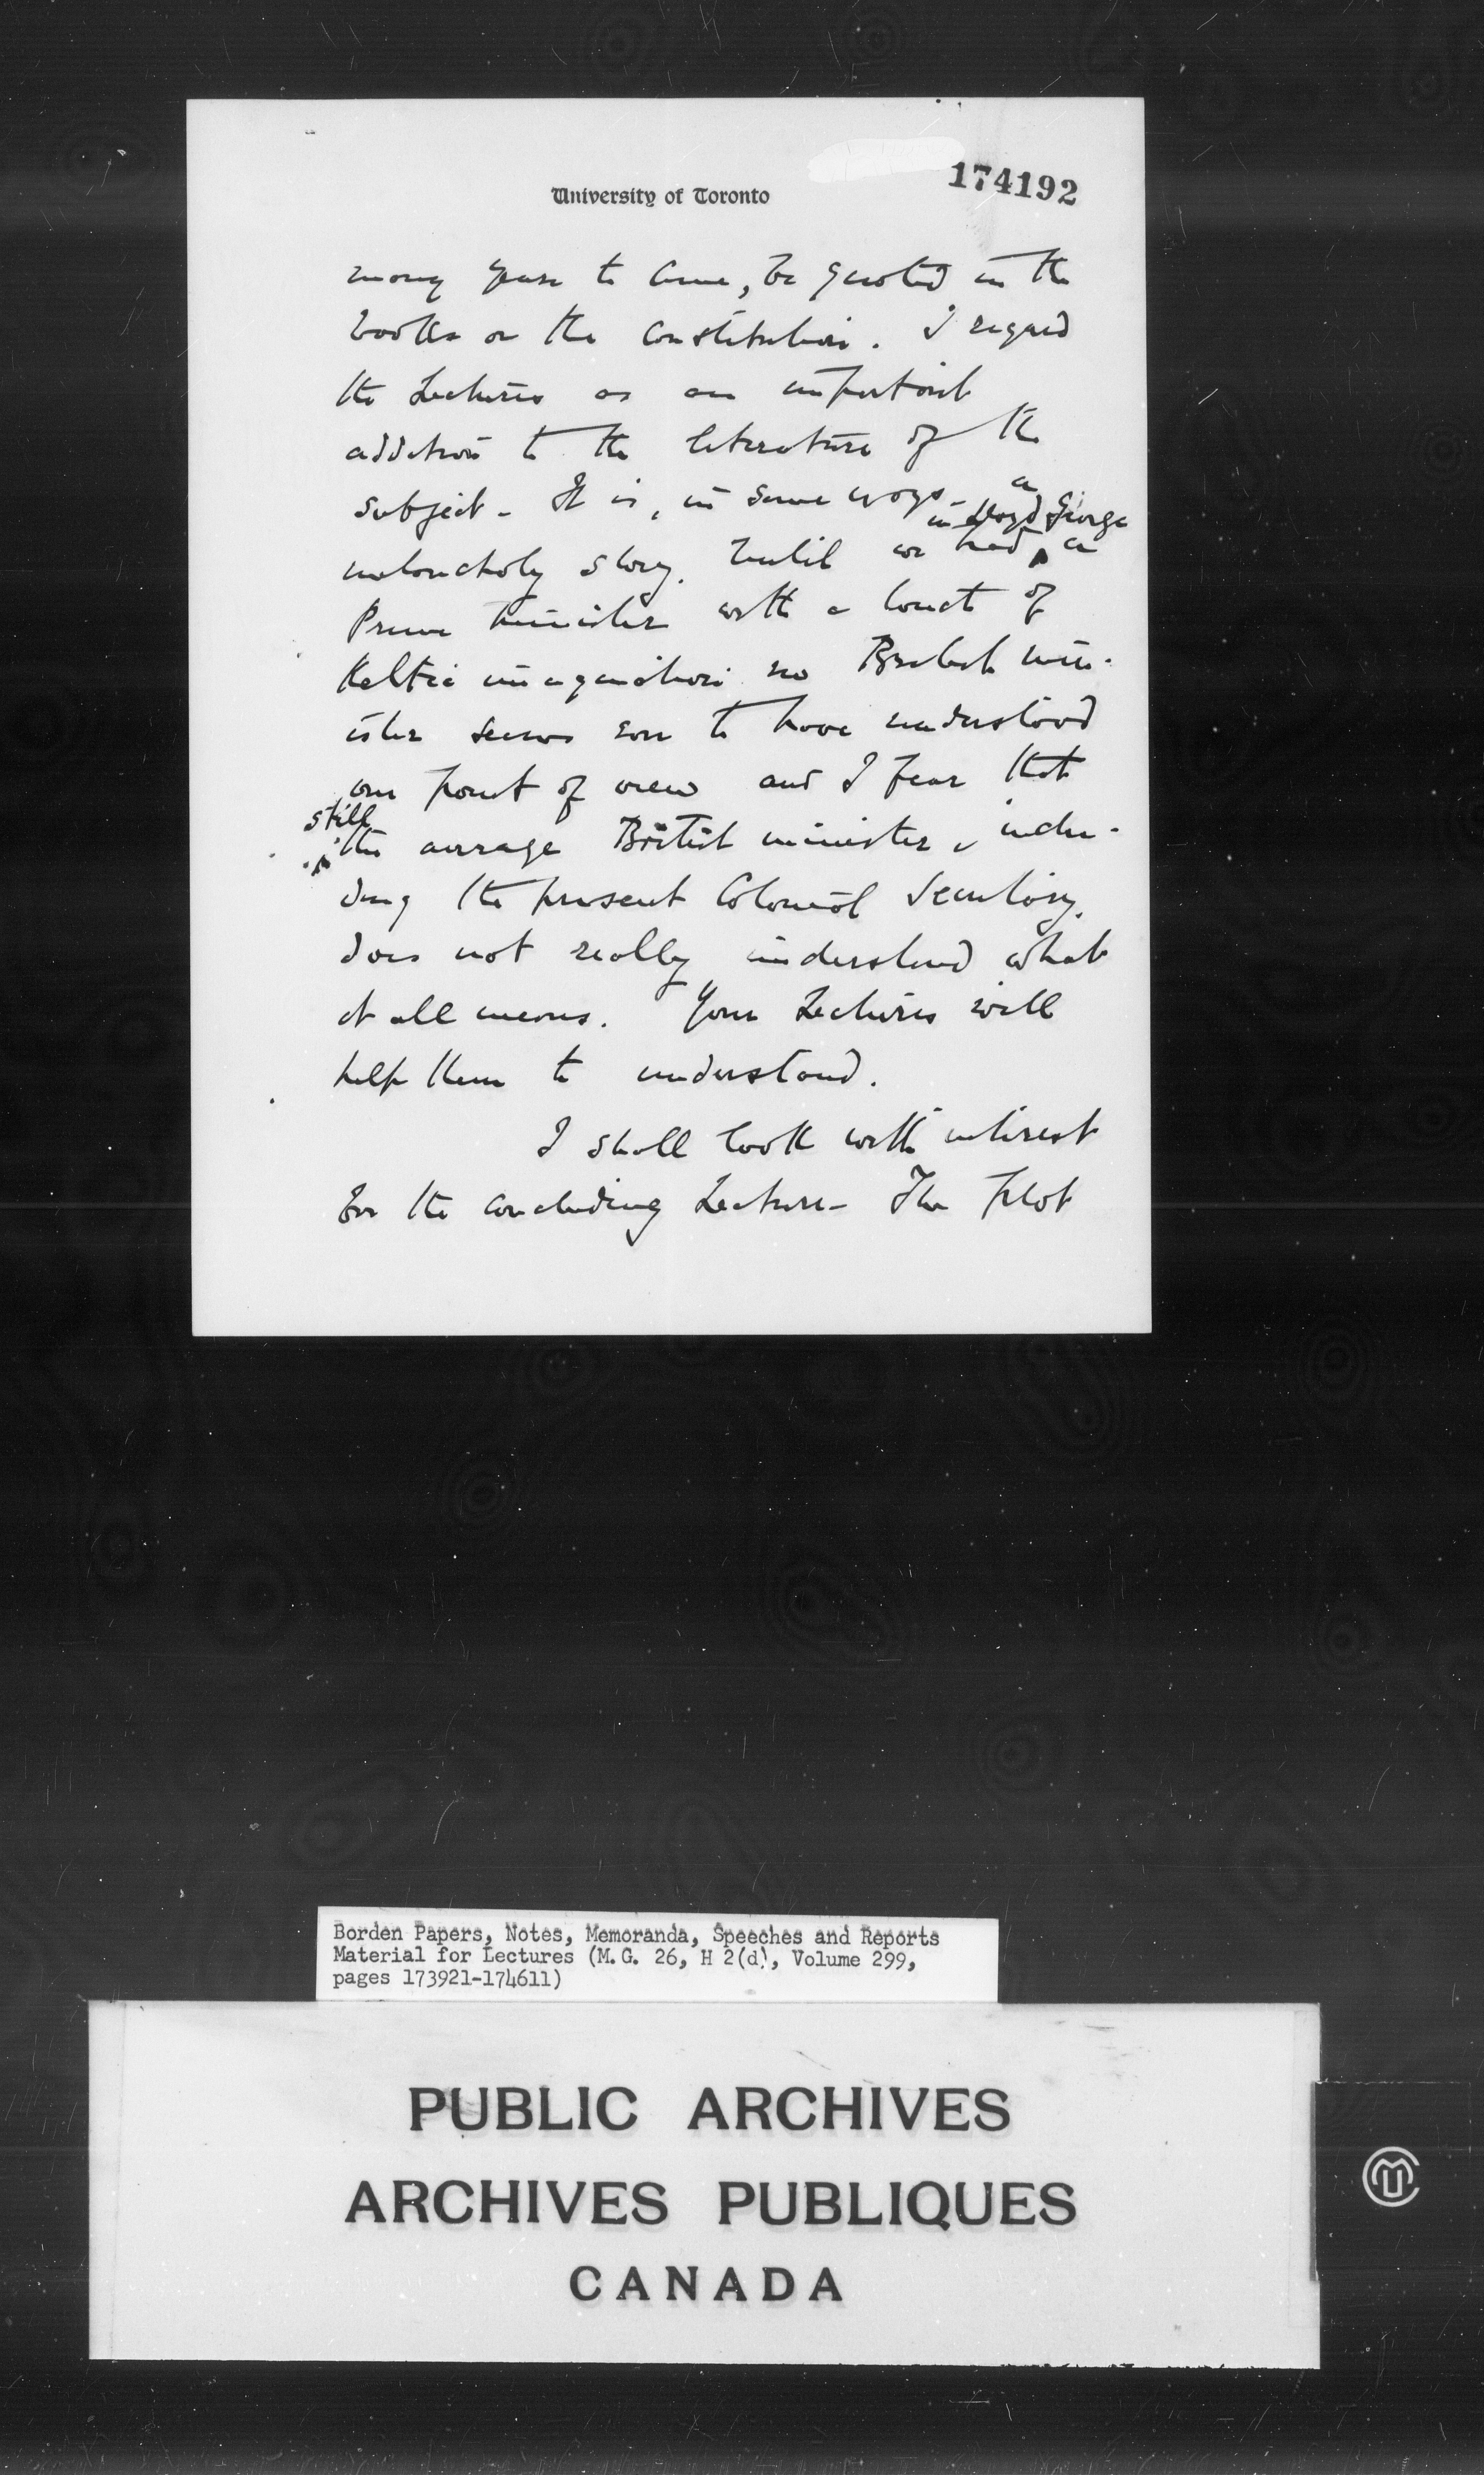 174192
University of Toronto
many years to come, be quoted in the
books on the Constitution. I regard
the Lectures as an important
addition to the literature of the
subject. It is, in some ways, a
melancholy story. Until we had in Lloyd George a
Prime Minister with a touch of
Keltic imagination no British min-
ister seems to have understood
our point of view and I fear that
still the average British minister, inclu-
ding the present Colonial Secretary,
does not really understand what
it all means. Your Lectures will
help them to understand.
I shall look with interest
for the concluding Lecture. The plot
Borden Papers, Notes, Memoranda, Speeches and Reports
Material for Lectures (M.G. 26, H 2(d), Volume 299,
pages 173921-174611)
PUBLIC ARCHIVES
ARCHIVES PUBLIQUES
CANADA